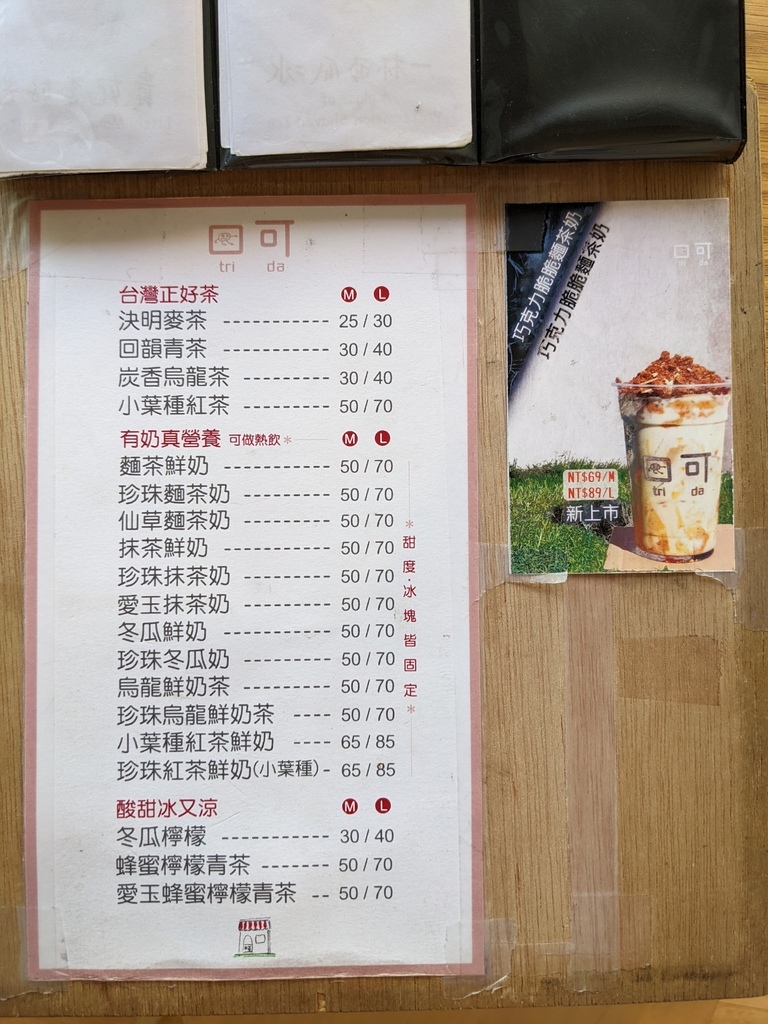 回可
tri da
台灣正好茶 M L
決明麥茶 ---------- 25 / 30
回韻青茶 ---------- 30 / 40
炭香烏龍茶 -------- 30 / 40
小葉種紅茶 -------- 50 / 70
有奶真營養 可做熱飲* M L
麵茶鮮奶 ---------- 50 / 70
珍珠麵茶奶 -------- 50 / 70
仙草麵茶奶 -------- 50 / 70
抹茶鮮奶 ---------- 50 / 70
珍珠抹茶奶 -------- 50 / 70
愛玉抹茶奶 -------- 50 / 70
冬瓜鮮奶 ---------- 50 / 70
珍珠冬瓜奶 -------- 50 / 70
烏龍鮮奶茶 -------- 50 / 70
珍珠烏龍鮮奶茶 ---- 50 / 70
小葉種紅茶鮮奶 ---- 65 / 85
珍珠紅茶鮮奶(小葉種) - 65 / 85
*甜度·冰塊皆固定*
酸甜冰又涼 M L
冬瓜檸檬 ---------- 30 / 40
蜂蜜檸檬青茶 ------- 50 / 70
愛玉蜂蜜檸檬青茶 -- 50 / 70
巧克力脆脆麵茶奶
巧克力脆脆麵茶奶
回可
NT$69/M
NT$89/L
新上市
回可
tri da